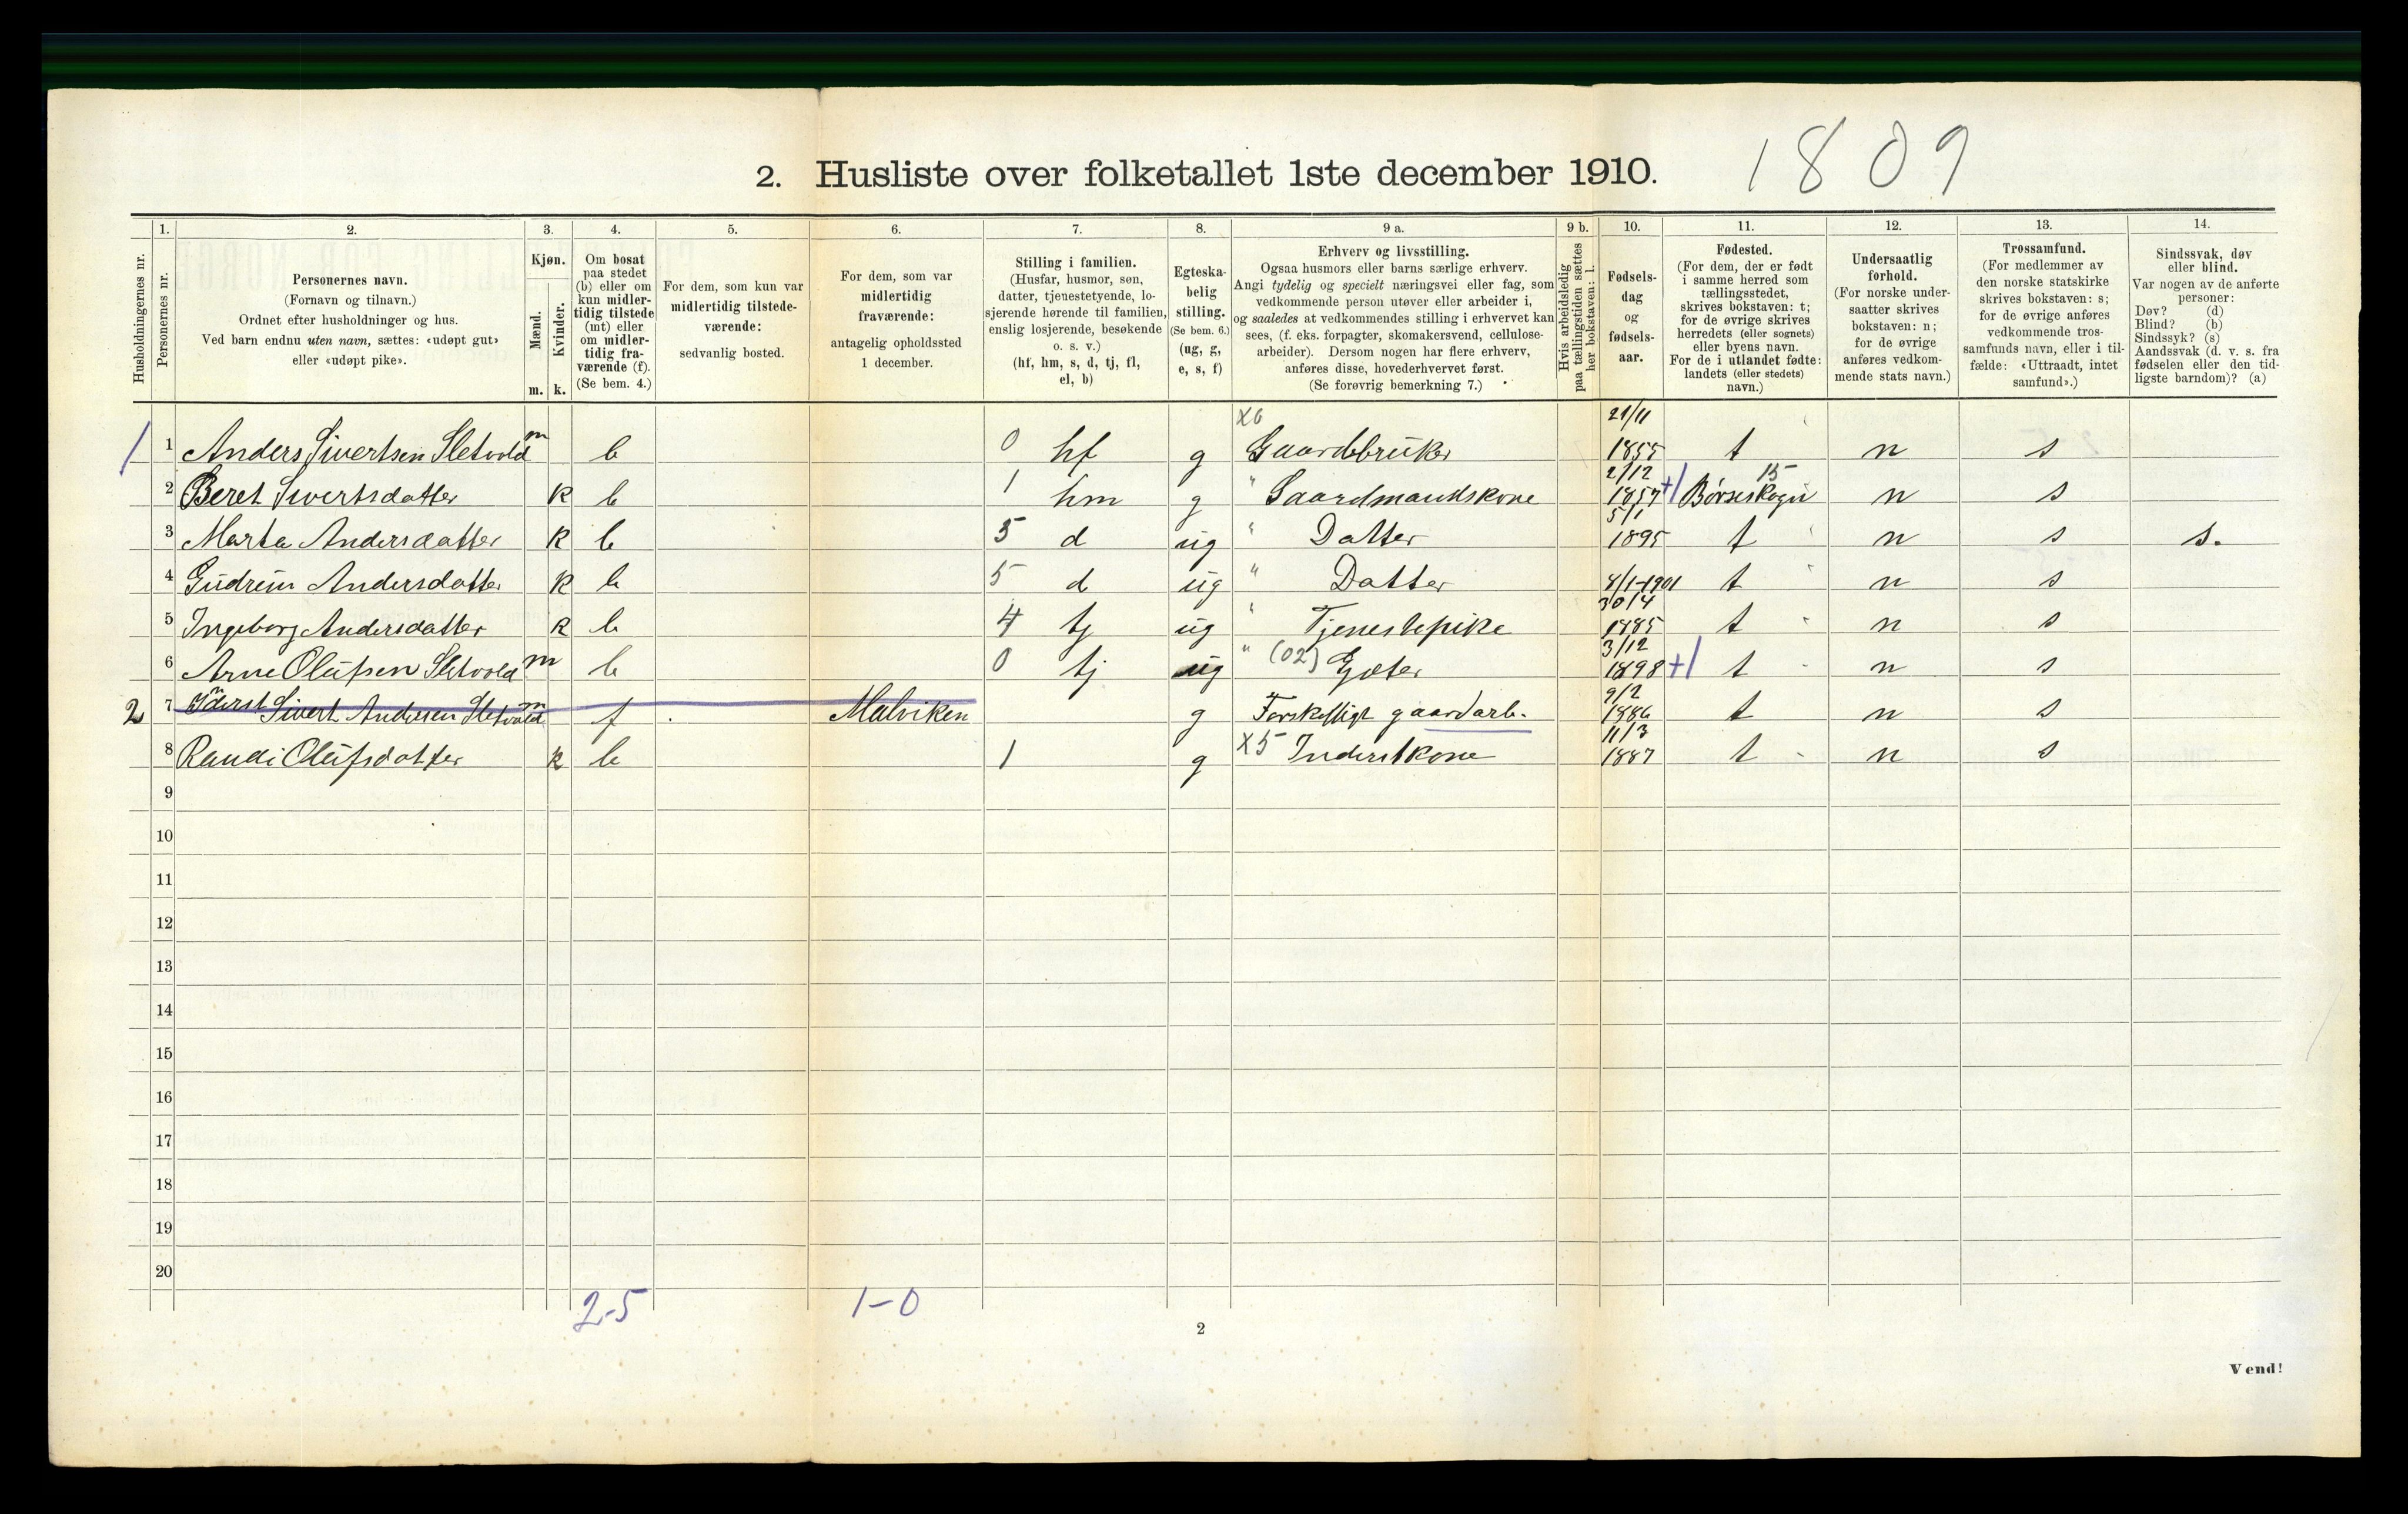 2. Husliste over folketallet 1ste december 1910. 1809
Husholdningernes nr.
1. Personernes nr.
2. Personernes navn. (Fornavn og tilnavn.) Ordnet efter husholdninger og hus. Ved barn endnu uten navn, sættes: «udøpt gut» eller «udøpt pike».
3. Kjøn. Mænd. m. Kvinder. k.
4. Om bosat paa stedet (b) eller om kun midlertidig tilstede (mt) eller om midlertidig fraværende (f). (Se bem. 4.)
5. For dem, som kun var midlertidig tilstedeværende: sedvanlig bosted.
6. For dem, som var midlertidig fraværende: antagelig opholdssted 1 december.
7. Stilling i familien. (Husfar, husmor, søn, datter, tjenestetyende, losjerende hørende til familien, enslig losjerende, besøkende o. s. v.) (hf, hm, s, d, tj, fl, el, b)
8. Egteskabelig stilling. (Se bem. 6.) (ug, g, e, s, f)
9 a. Erhverv og livsstilling. Ogsaa husmors eller barns særlige erhverv. Angi tydelig og specielt næringsvei eller fag, som vedkommende person utøver eller arbeider i, og saaledes at vedkommendes stilling i erhvervet kan sees, (f. eks. forpagter, skomakersvend, cellulosearbeider). Dersom nogen har flere erhverv, anføres disse, hovederhvervet først. (Se forøvrig bemerkning 7.)
9 b. Hvis arbeidsledig paa tællingstiden sættes her bokstaven: l.
10. Fødselsdag og fødselsaar.
11. Fødested. (For dem, der er født i samme herred som tællingsstedet, skrives bokstaven: t; for de øvrige skrives herredets (eller sognets) eller byens navn. For de i utlandet fødte: landets (eller stedets) navn.)
12. Undersaatlig forhold. (For norske undersaatter skrives bokstaven: n; for de øvrige anføres vedkommende stats navn.)
13. Trossamfund. (For medlemmer av den norske statskirke skrives bokstaven: s; for de øvrige anføres vedkommende trossamfunds navn, eller i tilfælde: «Uttraadt, intet samfund».)
14. Sindssvak, døv eller blind. Var nogen av de anførte personer: Døv? (d) Blind? (b) Sindssyk? (s) Aandssvak (d. v. s. fra fødselen eller den tidligste barndom)? (a)
1 1 Anders Sivertsen Sletvold m b 0 hf g X6 Gaardbruker 21/11 1855 t n s
2 Beret Sivertsdatter k b 1 hm g " Gaardmandskone 2/12 1857 +1 Børseskogn 15 n s
3 Marta Andersdatter k b 5 d ug " Datter 5/1 1895 t n s s.
4 Gudrun Andersdatter k b 5 d ug " Datter 8/1-1901 t n s
5 Ingeborg Andersdatter k b 4 tj ug " Tjenestepike 30/4 1885 t n s
6 Arne Olufsen Sletvold m b 0 tj ug " (02) Gjæter 3/12 1898 +1 t n s
2 7 Inderst Sivert Andersen Sletvold m f Malviken g Forskjelligt gaardarb. 9/2 1886 t n s
8 Randi Olufsdatter k b 1 g X5 Inderstkone 11/3 1887 t n s
9
10
11
12
13
14
15
16
17
18
19
20
2-5 1-0
2
Vend!